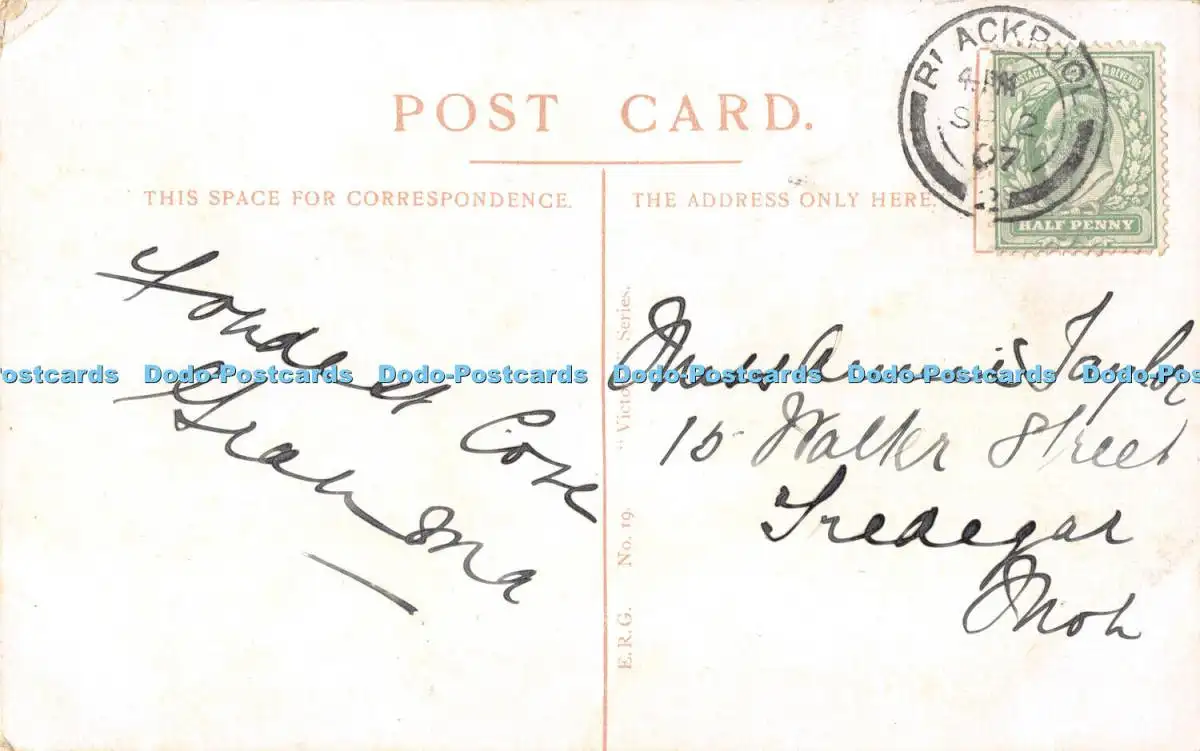 POST CARD.
THIS SPACE FOR CORRESPONDENCE.
THE ADDRESS ONLY HERE.
BLACKPOOL
4 PM
SP 2
07
POSTAGE & REVENUE
HALF PENNY
Fondest Love
Gran Ma
Miss Annis Taylor
15 Walter Street
Tredegar
Mon
E.R.G. No. 19. "Victoria" Series.
Dodo-Postcards Dodo-Postcards Dodo-Postcards Dodo-Postcards Dodo-Postcards Dodo-Postcards